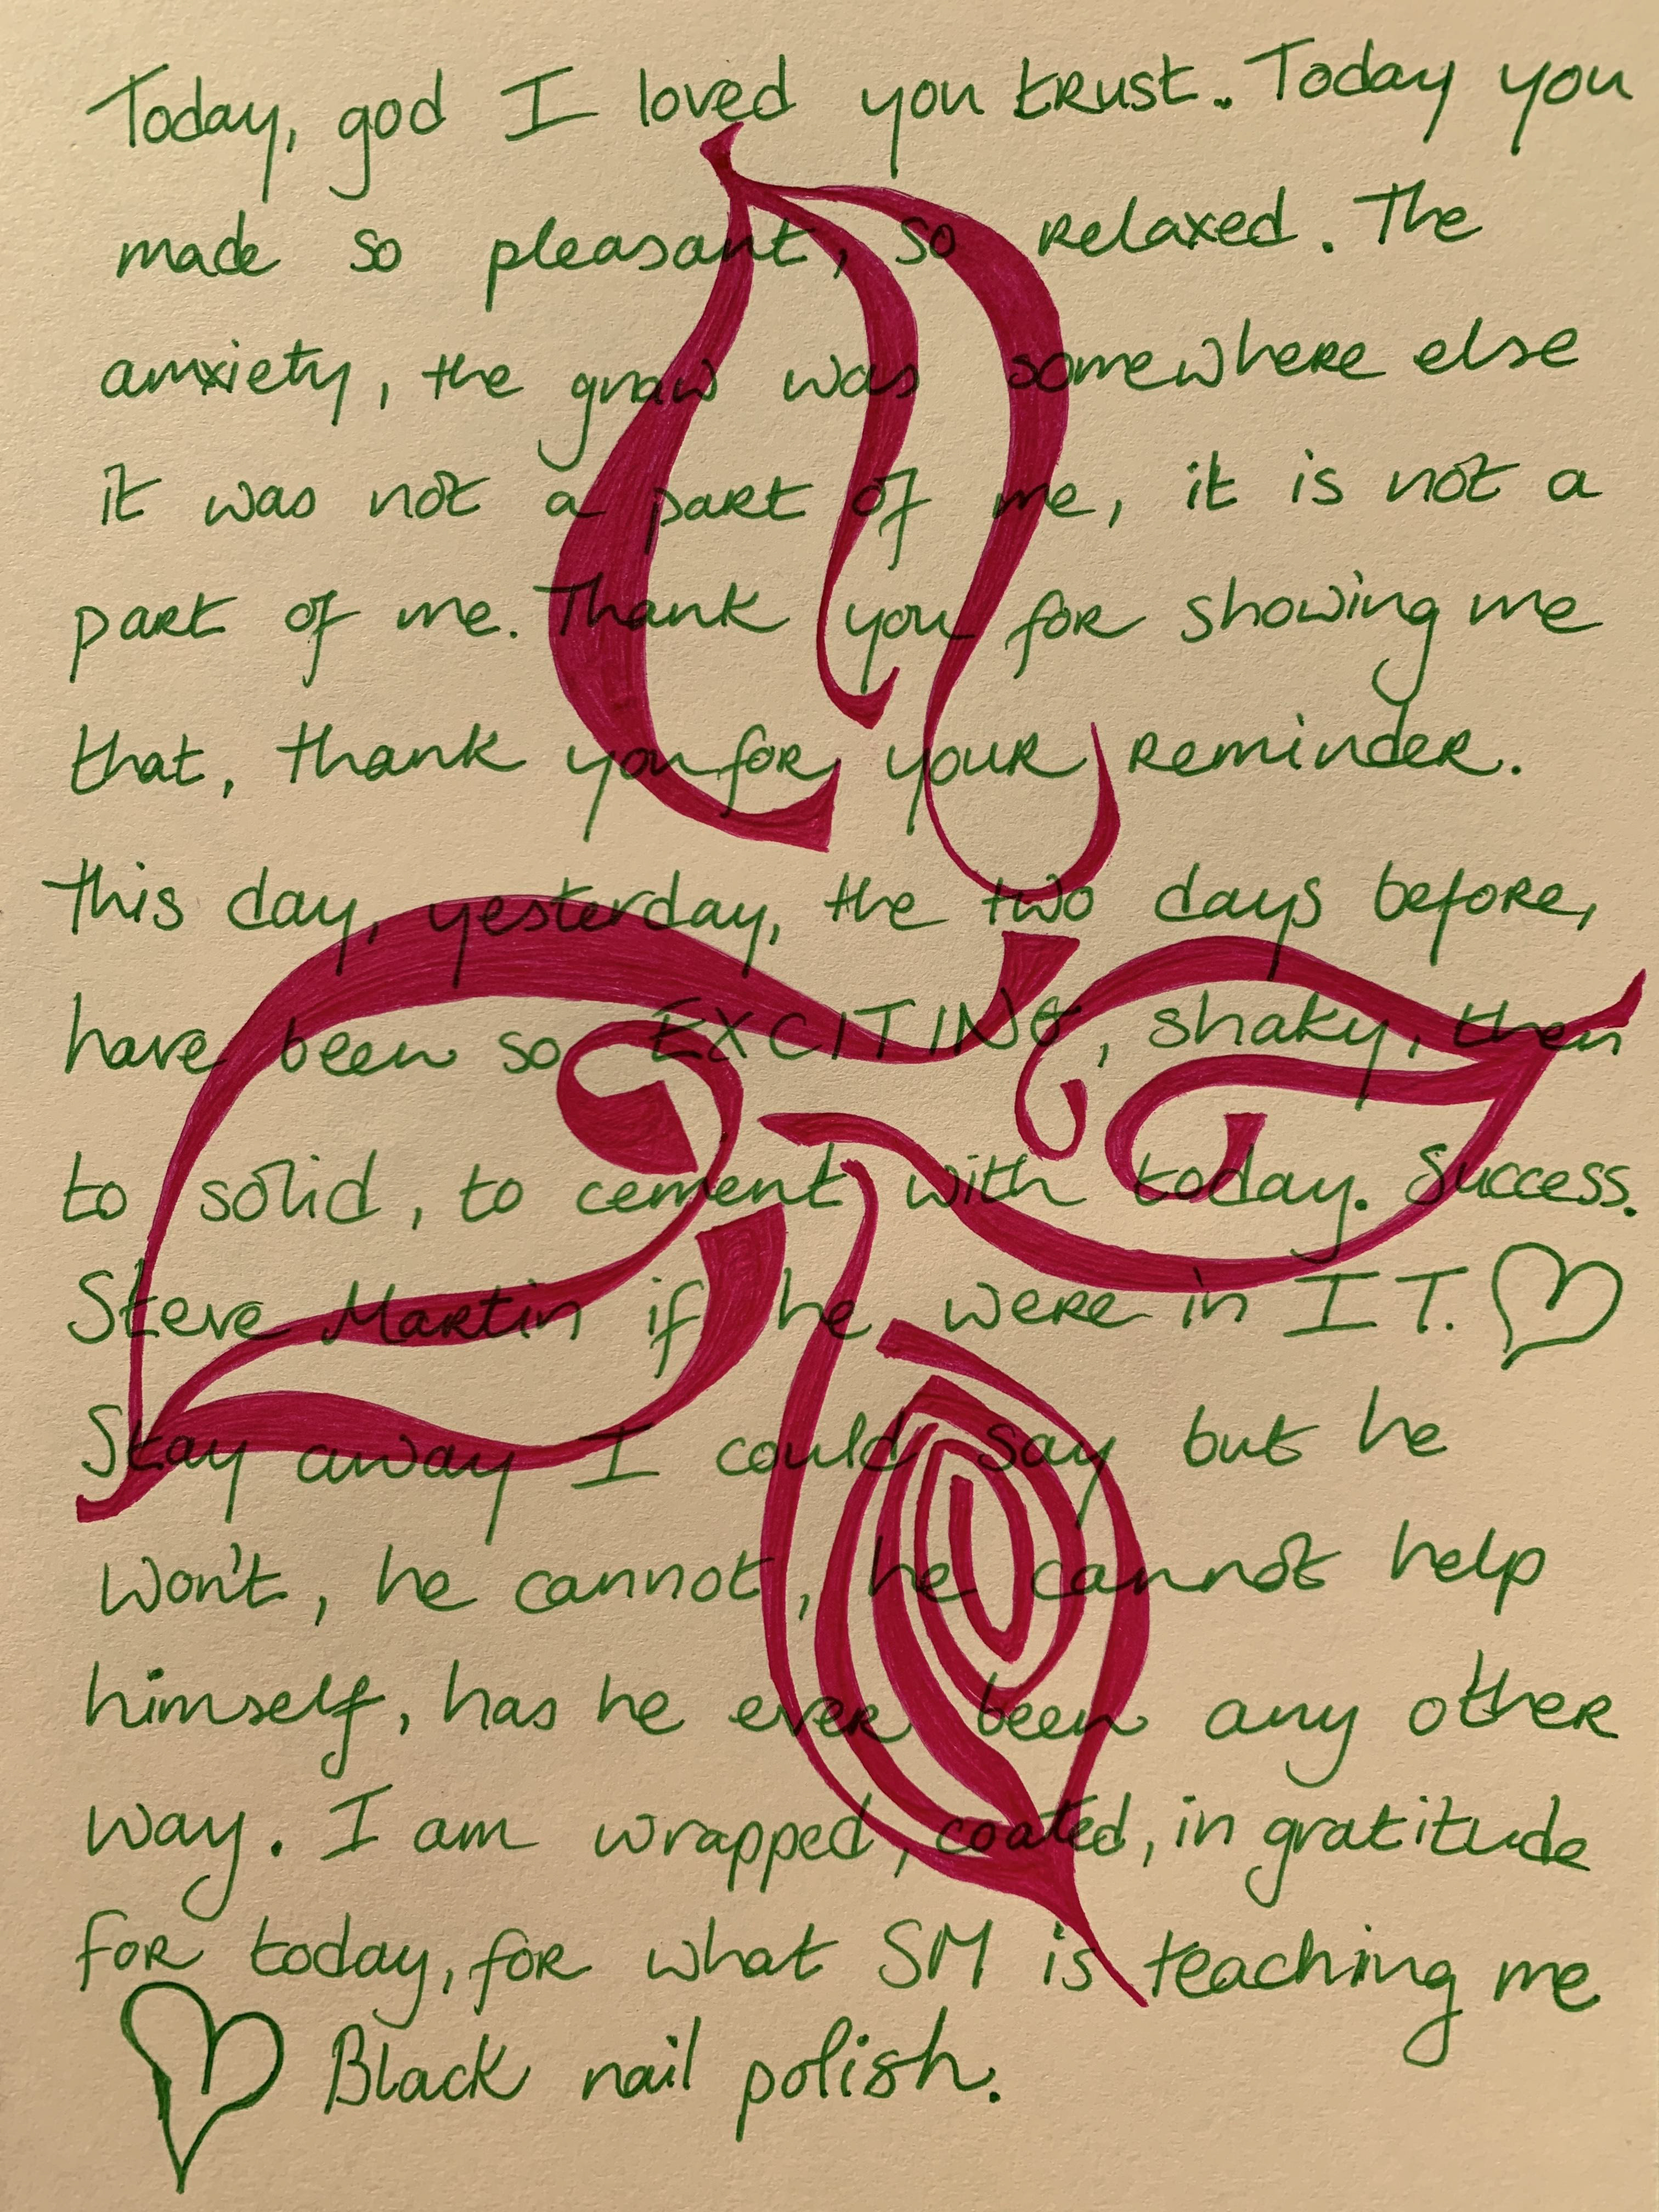 Today, god I loved you trust. Today you
made so pleasant, so relaxed. The
anxiety, the gnaw was somewhere else
it was not a part of me, it is not a
part of me. Thank you for showing me
that, thank you for your reminder.
This day, yesterday, the two days before,
have been so EXCITING, shaky, then
to solid, to cement with today. Success.
Steve Martin if he were in IT.
Stay away I could say but he
won't, he cannot, he cannot help
himself, has he ever been any other
way. I am wrapped, coated, in gratitude
for today, for what SM is teaching me
Black nail polish.